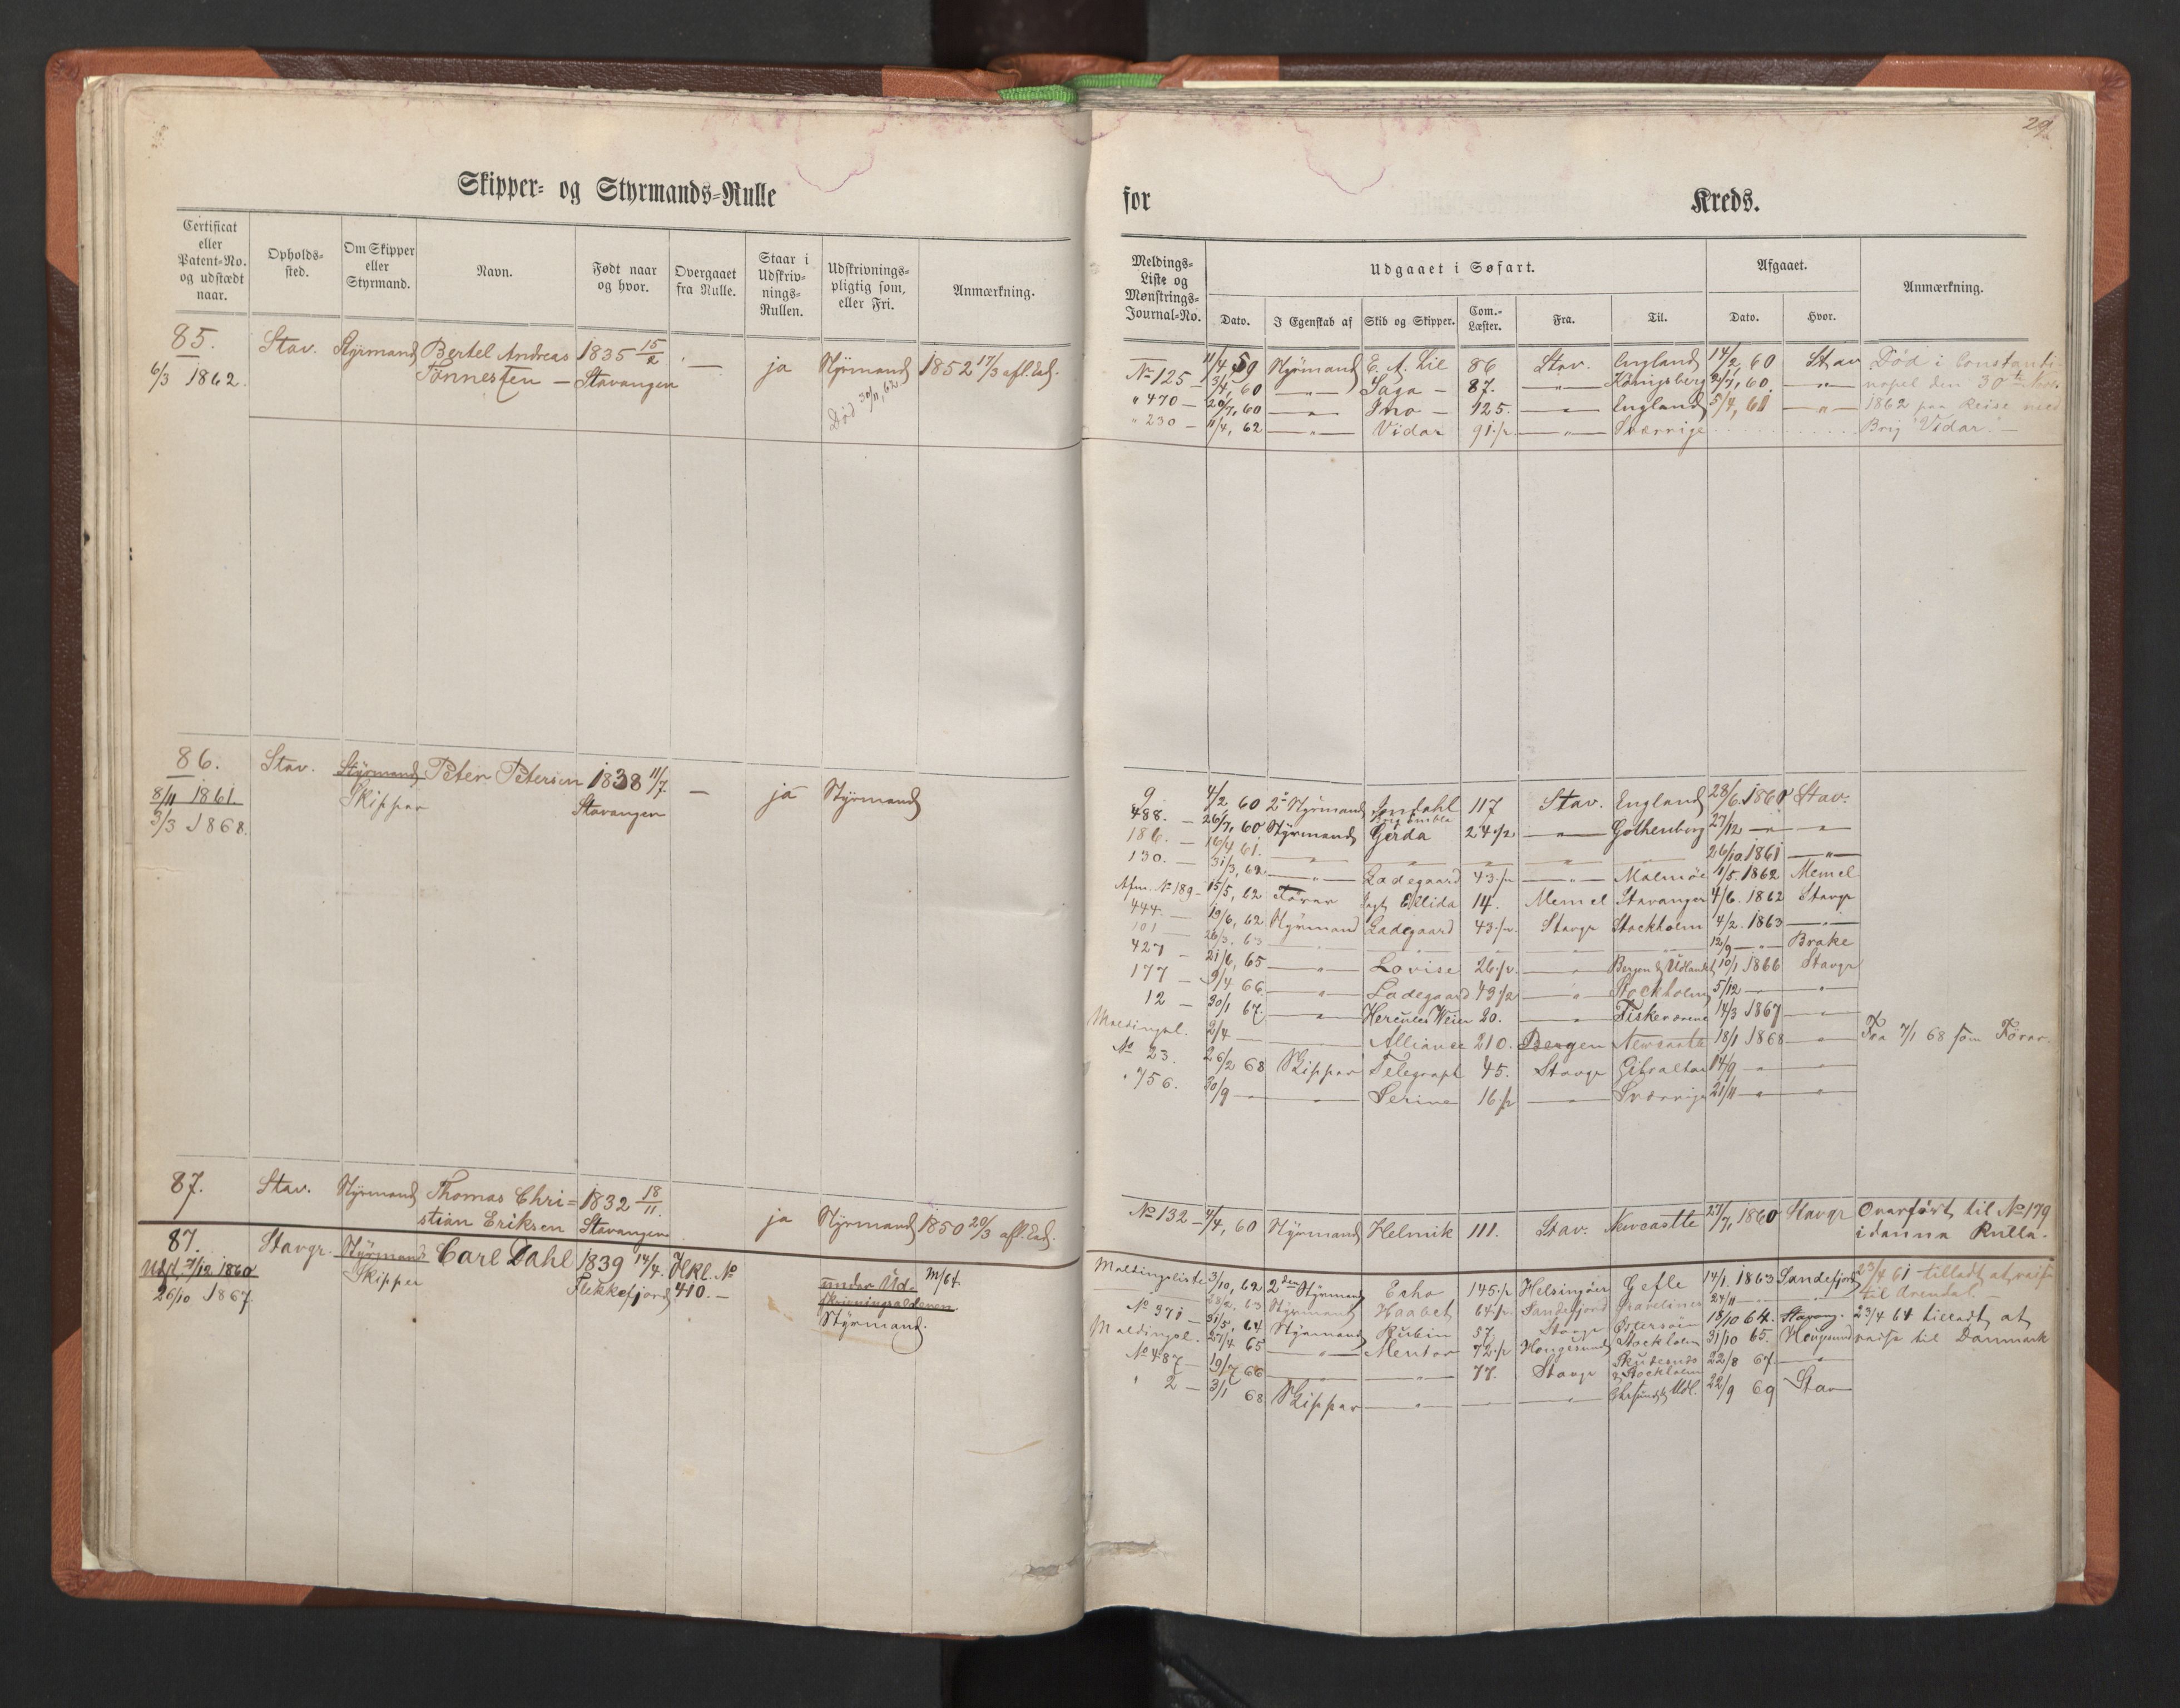 Skipper- og Styrmands-Rulle
Certificat eller Patent-No. og udstædt naar.
Opholds-sted.
Om Skipper eller Styrmand.
Navn.
Født naar og hvor.
Overgaaet fra Rulle.
Staar i Udskriv-nings-Rullen.
Udskrivnings-pligtig som, eller Fri.
Anmærkning.
85. Stav. Styrmand Bertel Andreas 1835 15/2 — ja Styrmand 1852 17/3 afl. Ed.
6/3 1862. Tønnesten — Stavanger
Død 30/11, 62
86. Stav. Styrmand Peter Petersen 1838 11/7. — ja Styrmand
8/11 1861. Skipper Stavanger
3/3 1868.
87. Stav. Styrmand Thomas Chri= 1832 18/11. ja Styrmand 1850 20/3 afl. Ed.
stian Eriksen Stavanger
87. Stavgr. Styrmand Carl Dahl 1839 14/4. Hkl. No under Ud- M/64.
Udst. 7/12 1860 Skipper Flekkefjord 410. — skrivningsalderen
26/10 1867. Styrmand.
29
for Kreds.
Meldings-Liste og Mønstrings-Journal-No.
Udgaaet i Søfart.
Afgaaet.
Anmærkning.
Dato. I Egenskab af Skib og Skipper. Com.-Læster. Fra. Til. Dato. Hvor.
No 125 — 11/4 59 Styrmand 86 Stav. England 14/2, 60 Stav Død i Constanti
3/4, 60 — " — Saga — 87. — " — Königsberg 60. — " — nopel den 30te Nov.
" 470 — 20/7, 60 — " — Ino — 125. — " — England 5/4, 61 — " — 1862 paa Reise med
" 230 — 11/4, 62 — " — Vidar 91 ½ — " — Sverrige Brig "Vidar." —
9 4/2 60 2d Styrmand 117 Stav. England 28/6. 1860 Stav.
488. — 26/7, 60 Styrmand Gerda 24 ½ — " — Gothenborg 27/12 — " — "
186. — 16/4 61. — " — 26/10 1861 — " —
130. — 31/3, 62 — " — Ladegaard 43 ½ — " — Malmöe 1/5. 1862 Memel
Afm. No 189 — 15/5, 62 Fører Jagt Ellida 14. Memel Stavanger 4/6. 1862 Stavgr
444. — 19/6, 62 Styrmand Ladegaard 43 ½ Stavgr Stockholm 4/2. 1863 — " —
101 — 26/3. 63 — " — 12/9 — " — Brake
427 — 21/6, 65 — " — Lovise 26 ½ — " — Bergen & Udlandet 10/1 1866 Stavgr
177 — 9/4 66. — " — Ladegaard 43 ½ — " — Stockholm 5/12 — "
12 — 30/1 67. — " — Hercules Weier 20. — " — Fiskeværene 14/3 1867 — " —
Meldingsl. 2/4 — Alliance 210. Bergen Newcastle 18/1 1868 — " Fra 7/1 68 som Fører.
No 23. 26/2 68 Skipper Telegraph 45. Stavgr Gibraltar 14/9 — " —
" 756. 30/9 — " — Serine 16 ½ — " — Sverrige 21/11 — " —
No 132 — 4/4, 60 Styrmand Helmik 111. Stav. Newcastle 27/7, 1860 Stavgr Overført til No 179
i denne Rulle.
Meldingsliste 3/10, 62 2den Styrmand Echo 145 ½ Helsingöer Gefle 14/1. 1863 Sandefjord 23/4 61 tilladt at reise
63 Styrmand Haabet 64 ½ Sandefjord 24/11 — til Arendal. —
No 371 — 31/5, 64 Styrmand Rubin 57. Stavgr Østersöen 18/10 64. Stavang. 23/4 64 tilladt at
Meldingsl. 27/4 65 — " — Mentor 72 ½ Hougesund Stockholm 31/10 65. Hougesund reise til Danmark
No 487 — 19/7 66 — " — 77. Stavgr & Stockholm 22/8 67. — " —
" 2 — 3/1 68 Skipper — " — Chrsund & Udl. 22/9 69 Stav